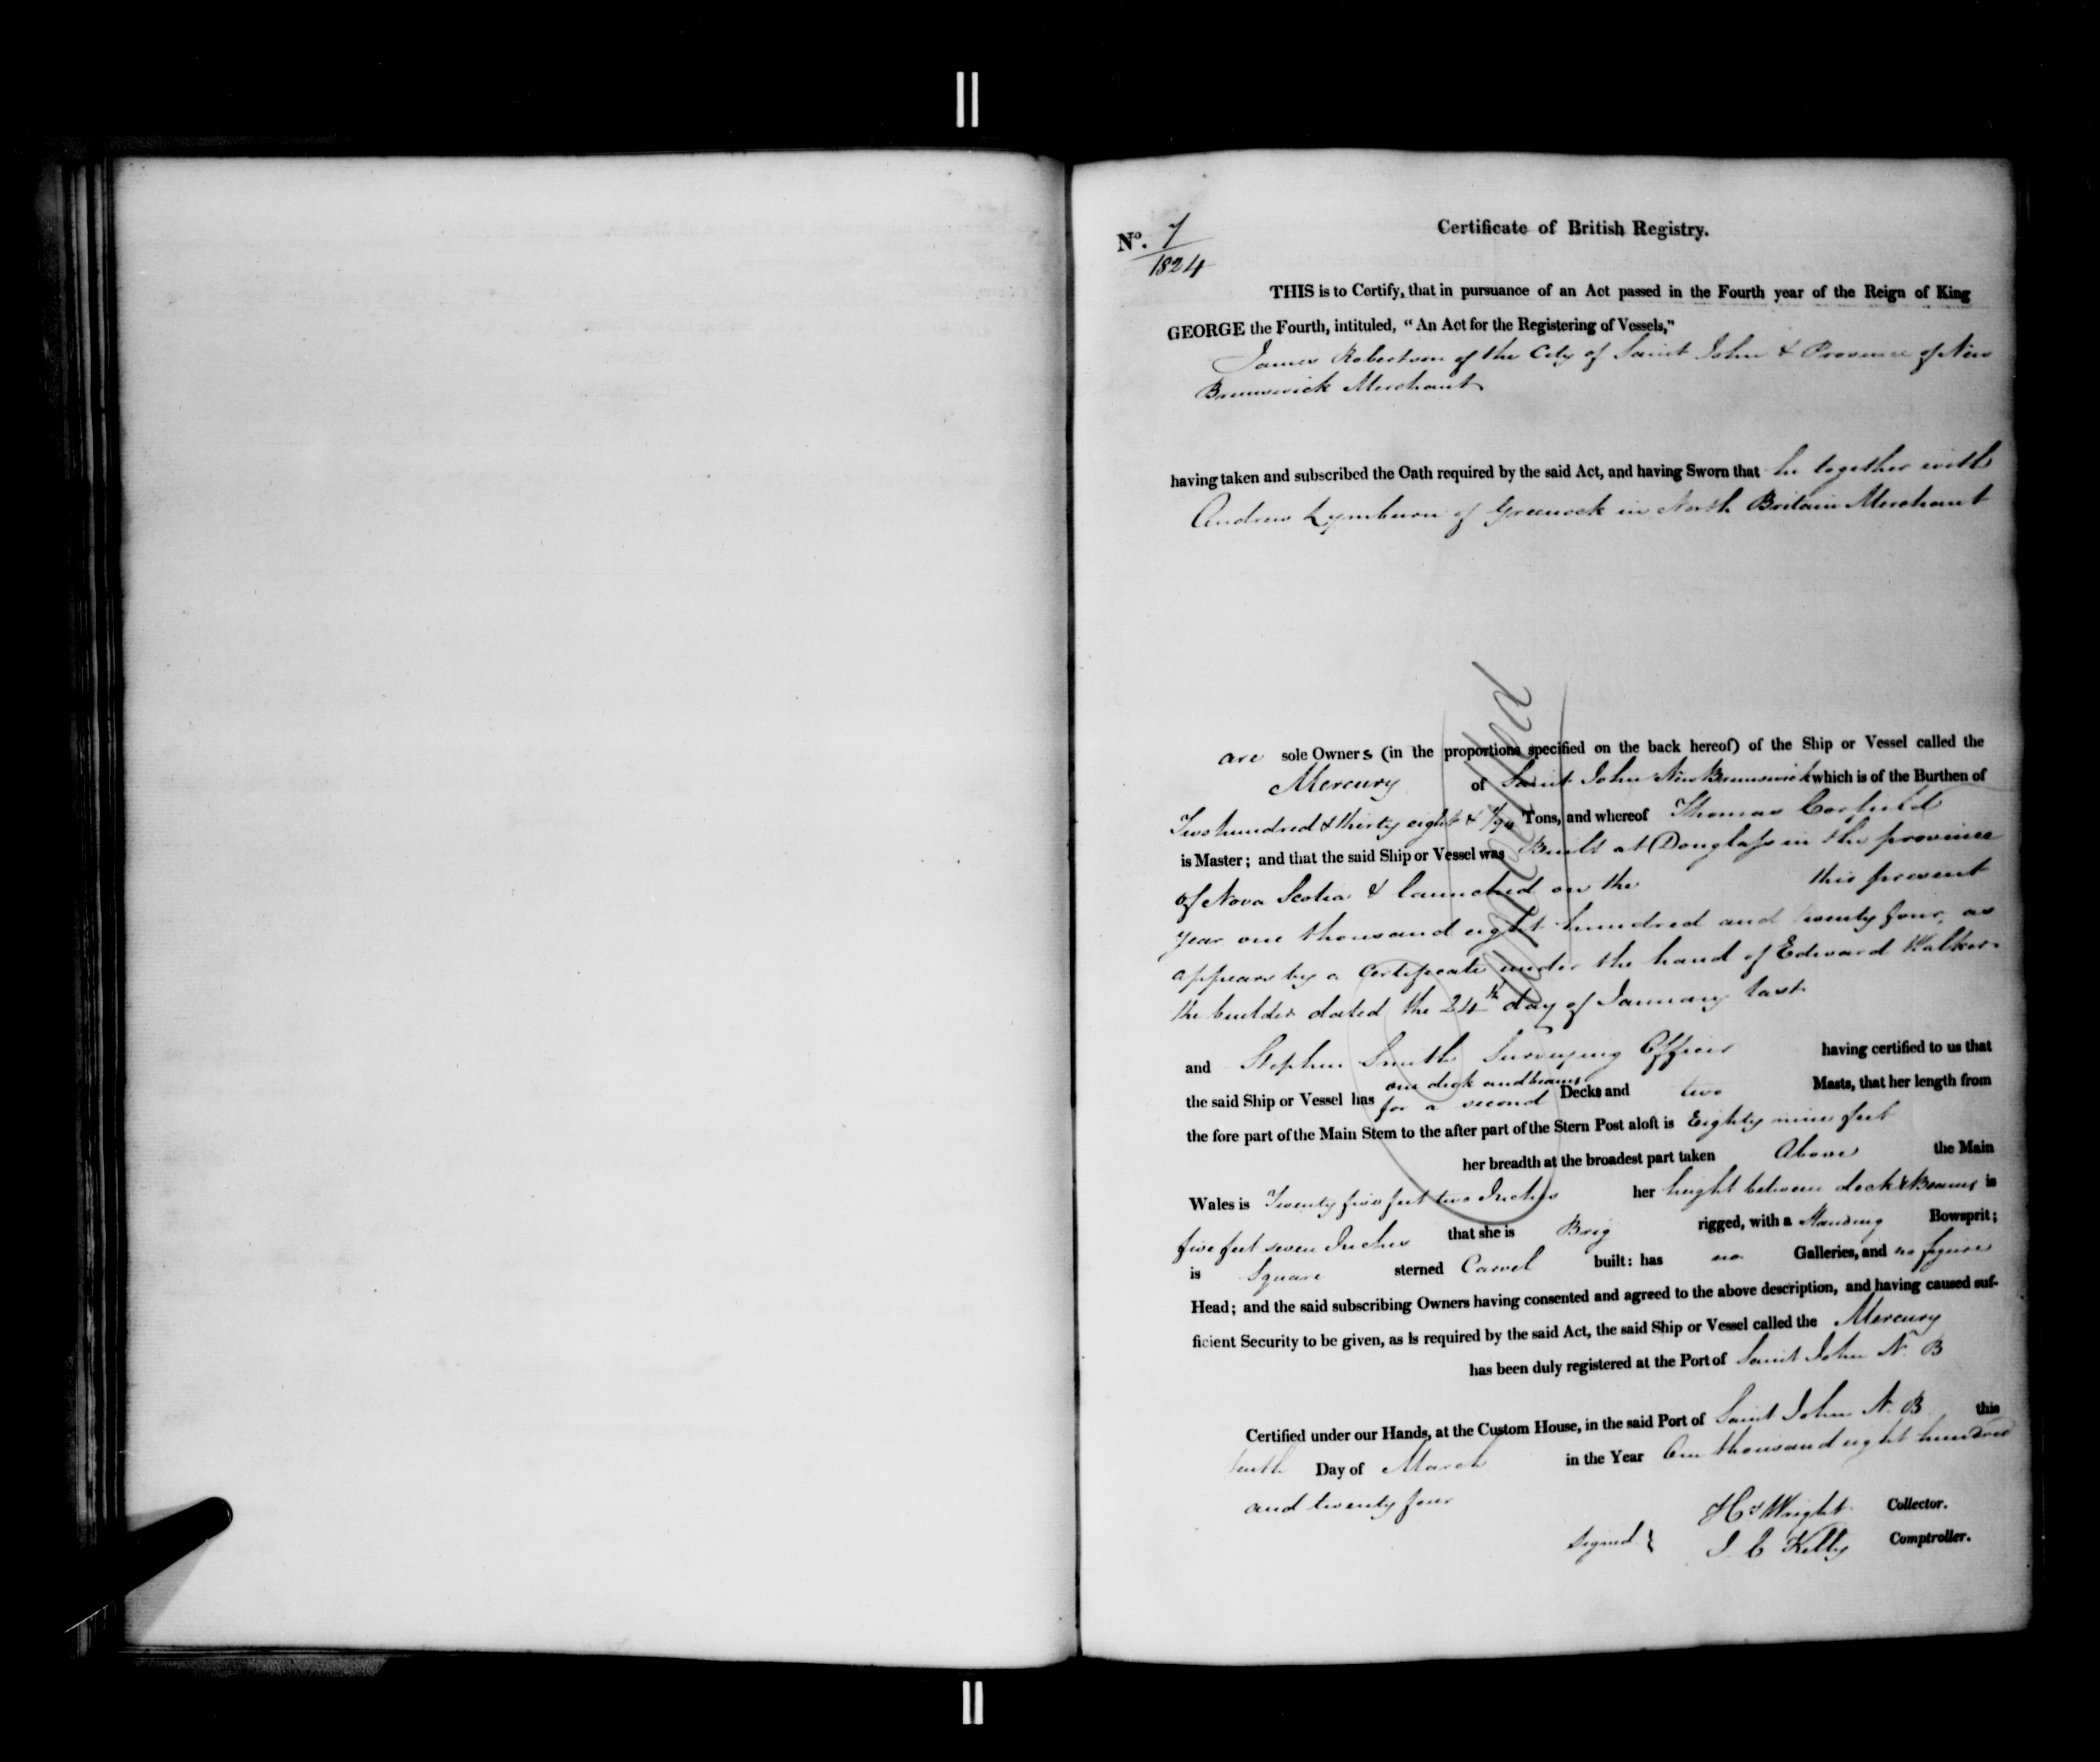 No. 7
1824
Certificate of British Registry.
THIS is to Certify, that in pursuance of an Act passed in the Fourth year of the Reign of King
GEORGE the Fourth, intituled, “An Act for the Registering of Vessels,”
James Robertson of the City of Saint John & Province of New
Brunswick Merchant
having taken and subscribed the Oath required by the said Act, and having Sworn that he together with
Andrew Lymburn of Greenock in North Britain Merchant
are sole Owners (in the proportions specified on the back hereof) of the Ship or Vessel called the
Mercury of Saint John New Brunswick which is of the Burthen of
Two hundred & thirty eight & 1/94 Tons, and whereof Thomas Corfield
is Master; and that the said Ship or Vessel was Built at Douglass in the province
of Nova Scotia & launched on the this present
year one thousand eight hundred and twenty four, as
appears by a Certificate under the hand of Edward Walker
the builder dated the 24th day of January last
Cancelled
and Stephen Smith Surveying Officer having certified to us that
the said Ship or Vessel has one deck and beams for a second Decks and two Masts, that her length from
the fore part of the Main Stem to the after part of the Stern Post aloft is Eighty nine feet
her breadth at the broadest part taken Above the Main
Wales is Twenty five feet two Inches her height between deck & Beams is
five feet seven Inches that she is Brig rigged, with a Standing Bowsprit;
is Square sterned Carvel built: has no Galleries, and no figure
Head; and the said subscribing Owners having consented and agreed to the above description, and having caused suf-
ficient Security to be given, as is required by the said Act, the said Ship or Vessel called the Mercury
has been duly registered at the Port of Saint John N. B
Certified under our Hands, at the Custom House, in the said Port of Saint John N. B this
tenth Day of March in the Year One thousand eight hundred
and twenty four
Hy Wright Collector.
Signed } J. C Kelly Comptroller.